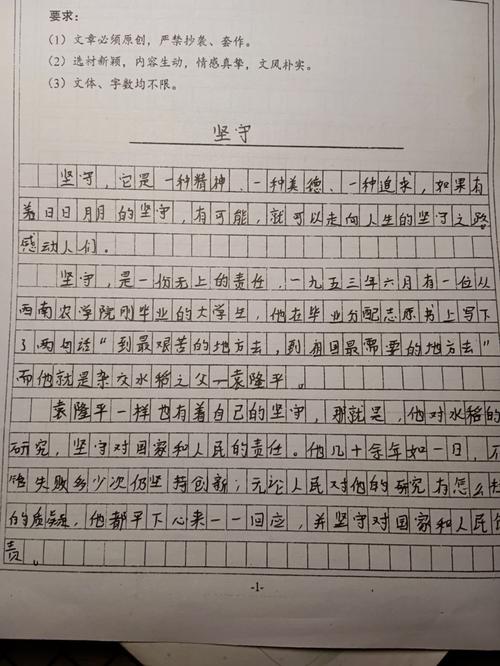 要求：
（1）文章必须原创，严禁抄袭、套作。
（2）选材新颖，内容生动，情感真挚，文风朴实。
（3）文体、字数均不限。
坚守
坚守，它是一种精神、一种美德、一种追求，如果有
着日日月月的坚守，有可能，就可以走向人生的坚守之路
感动人们。
坚守，是一份无上的责任，一九五三年六月有一位从
西南农学院刚毕业的大学生，他在毕业分配志愿书上写下
了两句话“到最艰苦的地方去，到祖国最需要的地方去”
而他就是杂交水稻之父—袁隆平。
袁隆平一样也有着自己的坚守，那就是，他对水稻的
研究，坚守对国家和人民的责任。他几十余年如一日，不
管失败多少次仍坚持创新；无论人民对他的研究有怎么样
的质疑，他都平下心来一一回应，并坚守对国家和人民的
责。
-1-